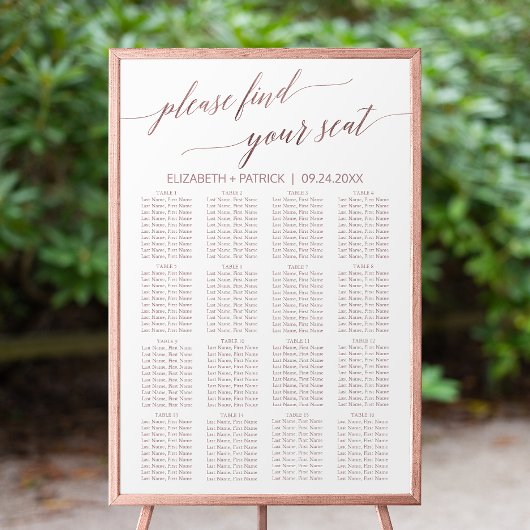 please find
your seat
ELIZABETH + PATRICK | 09.24.20XX
TABLE 1
Last Name, First Name
Last Name, First Name
Last Name, First Name
Last Name, First Name
Last Name, First Name
Last Name, First Name
Last Name, First Name
Last Name, First Name
TABLE 2
Last Name, First Name
Last Name, First Name
Last Name, First Name
Last Name, First Name
Last Name, First Name
Last Name, First Name
Last Name, First Name
Last Name, First Name
TABLE 3
Last Name, First Name
Last Name, First Name
Last Name, First Name
Last Name, First Name
Last Name, First Name
Last Name, First Name
Last Name, First Name
Last Name, First Name
TABLE 4
Last Name, First Name
Last Name, First Name
Last Name, First Name
Last Name, First Name
Last Name, First Name
Last Name, First Name
Last Name, First Name
Last Name, First Name
TABLE 5
Last Name, First Name
Last Name, First Name
Last Name, First Name
Last Name, First Name
Last Name, First Name
Last Name, First Name
Last Name, First Name
Last Name, First Name
TABLE 6
Last Name, First Name
Last Name, First Name
Last Name, First Name
Last Name, First Name
Last Name, First Name
Last Name, First Name
Last Name, First Name
Last Name, First Name
TABLE 7
Last Name, First Name
Last Name, First Name
Last Name, First Name
Last Name, First Name
Last Name, First Name
Last Name, First Name
Last Name, First Name
Last Name, First Name
TABLE 8
Last Name, First Name
Last Name, First Name
Last Name, First Name
Last Name, First Name
Last Name, First Name
Last Name, First Name
Last Name, First Name
Last Name, First Name
TABLE 9
Last Name, First Name
Last Name, First Name
Last Name, First Name
Last Name, First Name
Last Name, First Name
Last Name, First Name
Last Name, First Name
Last Name, First Name
TABLE 10
Last Name, First Name
Last Name, First Name
Last Name, First Name
Last Name, First Name
Last Name, First Name
Last Name, First Name
Last Name, First Name
Last Name, First Name
TABLE 11
Last Name, First Name
Last Name, First Name
Last Name, First Name
Last Name, First Name
Last Name, First Name
Last Name, First Name
Last Name, First Name
Last Name, First Name
TABLE 12
Last Name, First Name
Last Name, First Name
Last Name, First Name
Last Name, First Name
Last Name, First Name
Last Name, First Name
Last Name, First Name
Last Name, First Name
TABLE 13
Last Name, First Name
Last Name, First Name
Last Name, First Name
Last Name, First Name
Last Name, First Name
Last Name, First Name
Last Name, First Name
Last Name, First Name
TABLE 14
Last Name, First Name
Last Name, First Name
Last Name, First Name
Last Name, First Name
Last Name, First Name
Last Name, First Name
Last Name, First Name
Last Name, First Name
TABLE 15
Last Name, First Name
Last Name, First Name
Last Name, First Name
Last Name, First Name
Last Name, First Name
Last Name, First Name
Last Name, First Name
Last Name, First Name
TABLE 16
Last Name, First Name
Last Name, First Name
Last Name, First Name
Last Name, First Name
Last Name, First Name
Last Name, First Name
Last Name, First Name
Last Name, First Name